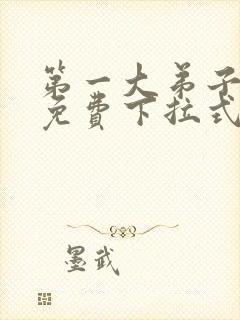 第一大弟子
免費下拉式
墨武